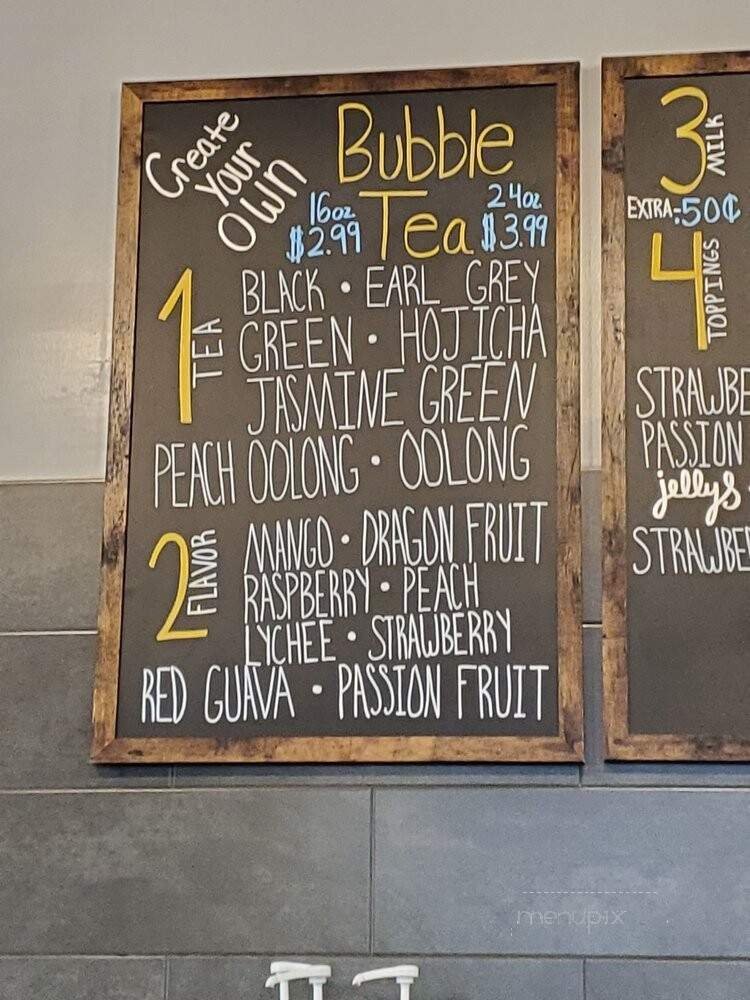 Create Your Own
Bubble Tea
16oz $2.99
24oz $3.99
1 TEA
BLACK • EARL GREY
GREEN • HOJICHA
JASMINE GREEN
PEACH OOLONG • OOLONG
2 FLAVOR
MANGO • DRAGON FRUIT
RASPBERRY • PEACH
LYCHEE • STRAWBERRY
RED GUAVA • PASSION FRUIT
3 MILK
EXTRA-.50¢
4 TOPPINGS
STRAWBE
PASSION
jellys
STRAWBE
menupix